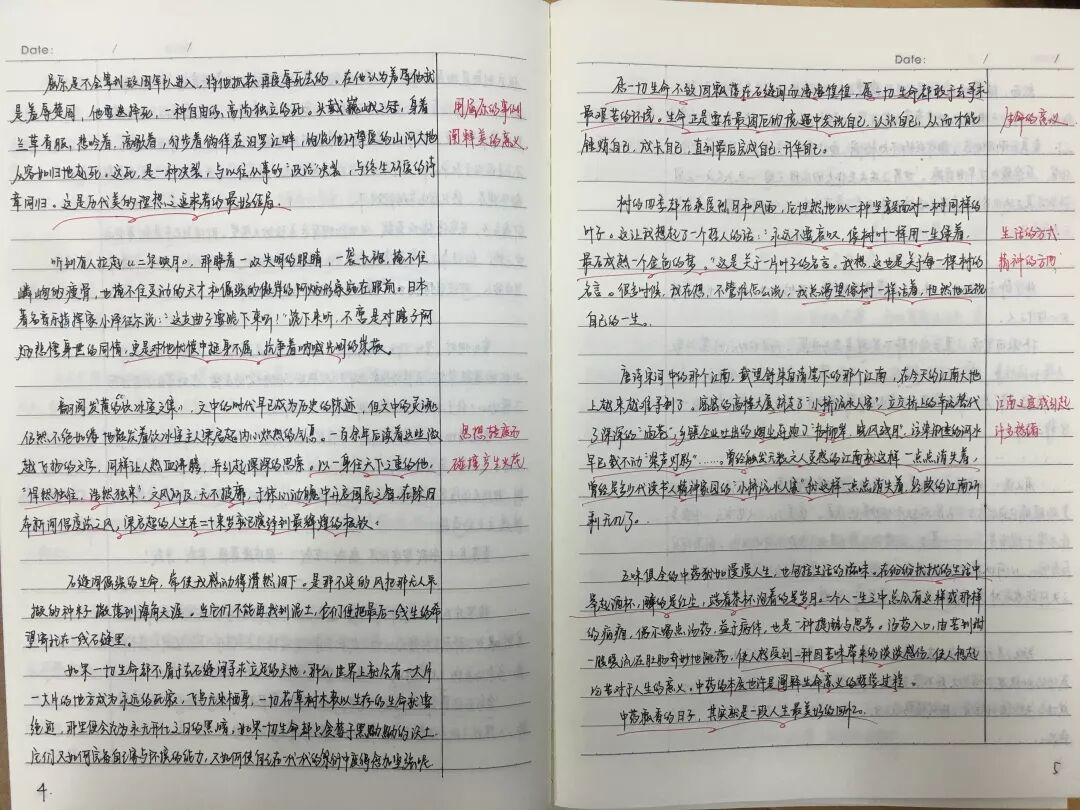 Date: / /
屈原是不会等到敌国军队进入，将他抓获再受辱死去的。在他认为羞辱他就
是羞辱楚国，他要选择死，一种自由的、高尚独立的死。头戴巍峨之冠，身着
兰草香服，悲吟着，高歌着，
从容如归地赴死。这死，是一种决裂，与以往从事的“政治”决裂，与终生研磨的诗
章同归。这是历代美的理想之追求者的最好结局。
用屈原的事例
阐释美的意义
听到有人拉起《二泉映月》，那瞎着一双失明的眼睛，一袭长褂，掩不住
嶙峋的瘦骨，也掩不住灵动的天才和倔强的傲岸的阿炳形象就在眼前。日本
著名音乐指挥家小泽征尔说：“这支曲子要跪下来听！”跪下来听，不啻是对瞎子阿
炳悲怆身世的同情，更是对他忧愤中挺身不屈、抗争着呐喊光明的崇敬。
翻阅发黄的《饮冰室文集》，文中的时代早已成为历史的陈迹，但文中的灵魂
仍然不绝如缕地散发着饮冰室主人梁启超内心炽热的气息。一百余年后读着这些激
越飞扬的文字，同样让人热血沸腾，并引起深深的思索。以一身任天下之重的他，
“悍然独往，浩然独来”，文风所及，无不披靡，于惊心动魄中开启国民之智，在除旧
布新间倡良治之风，梁启超的人生在二十来岁就已演绎到最辉煌的极致。
思想
碰撞产生火花
石缝间倔强的生命，常使我感动得潸然泪下。是那不定的风把那无人采
撷的种子撒落到海角天涯。当它们不能再找到泥土，它们便把最后一线生的希
望寄托在一线石缝里。
如果一切生命都不屑于去石缝间寻求立足的天地，那么，世界上就会有一大片
一大片的地方成为永远的死寂，飞鸟无处栖身，一切花草树木赖以生存的生命就要
绝迹，那里便会沦为永无开化之日的黑暗。如果一切生命都只贪恋于黑黝黝的沃土，
它们又如何完备自己驾驭环境的能力，又如何使自己在一代一代的繁衍中变得愈加坚强呢
4.
Date: / /
愿一切生命不敢因飘落在石缝间而凄凄惶惶。愿一切生命都敢于去寻求
最艰苦的环境。生命正是要在最困厄的境遇中发现自己，认识自己，从而才能
锤炼自己，成长自己，直到最后完成自己，升华自己。
生命的意义
树的四季都在承受烈日和风雨，它坦然地以一种坚毅面对一树同样的
叶子。这让我想起了一个哲人的话：“永远不要哀叹，像树叶一样用一生绿着，
最后成熟一个金色的梦。”这是关于一片叶子的名言。我想，这也是关于每一棵树的
名言。很多时候，我在想，不管谁怎么说，我总渴望像树一样活着，坦然地正视
自己的一生。
生活的方式
精神的方向
唐诗宋词中的那个江南，戴望舒朱自清笔下的那个江南，在今天的江南大地
上越来越难寻到了。座座的高楼大厦挤走了“小桥流水人家”，立交桥上的车流替代
了深深的“雨巷”，乡镇企业吐出的烟尘库跑了“杨柳岸，晓风残月”，污染稠重的河水
早已载不动“桨声灯影”……曾经触发无数文人灵感的江南就这样一点点消失着，
曾经是多少代读书人精神家园的“小桥流水人家”就这样一点点消失着，经典的江南所
剩无几了。
江南文章或引起
许多
五味俱全的中药就如漫漫人生，也包括生活的滋味。在纷纷扰扰的生活中，
举起酒杯，醉的是红尘，端着茶杯泡着的是岁月。一个人一生之中总会有这样或那样
的病痛，偶尔喝点汤药，益于病体，也是一种提醒与思考。汤药入口，由苦到甜
一股暖流在肚肠奇妙地流荡，使人感受到一种因苦味带来的淡淡感伤，使人想起
的苦对于人生的意义。中药的本质也许是阐释生命意义的哲学过程。
中药飘香的日子，其实就是一段人生最美好的回忆。
5